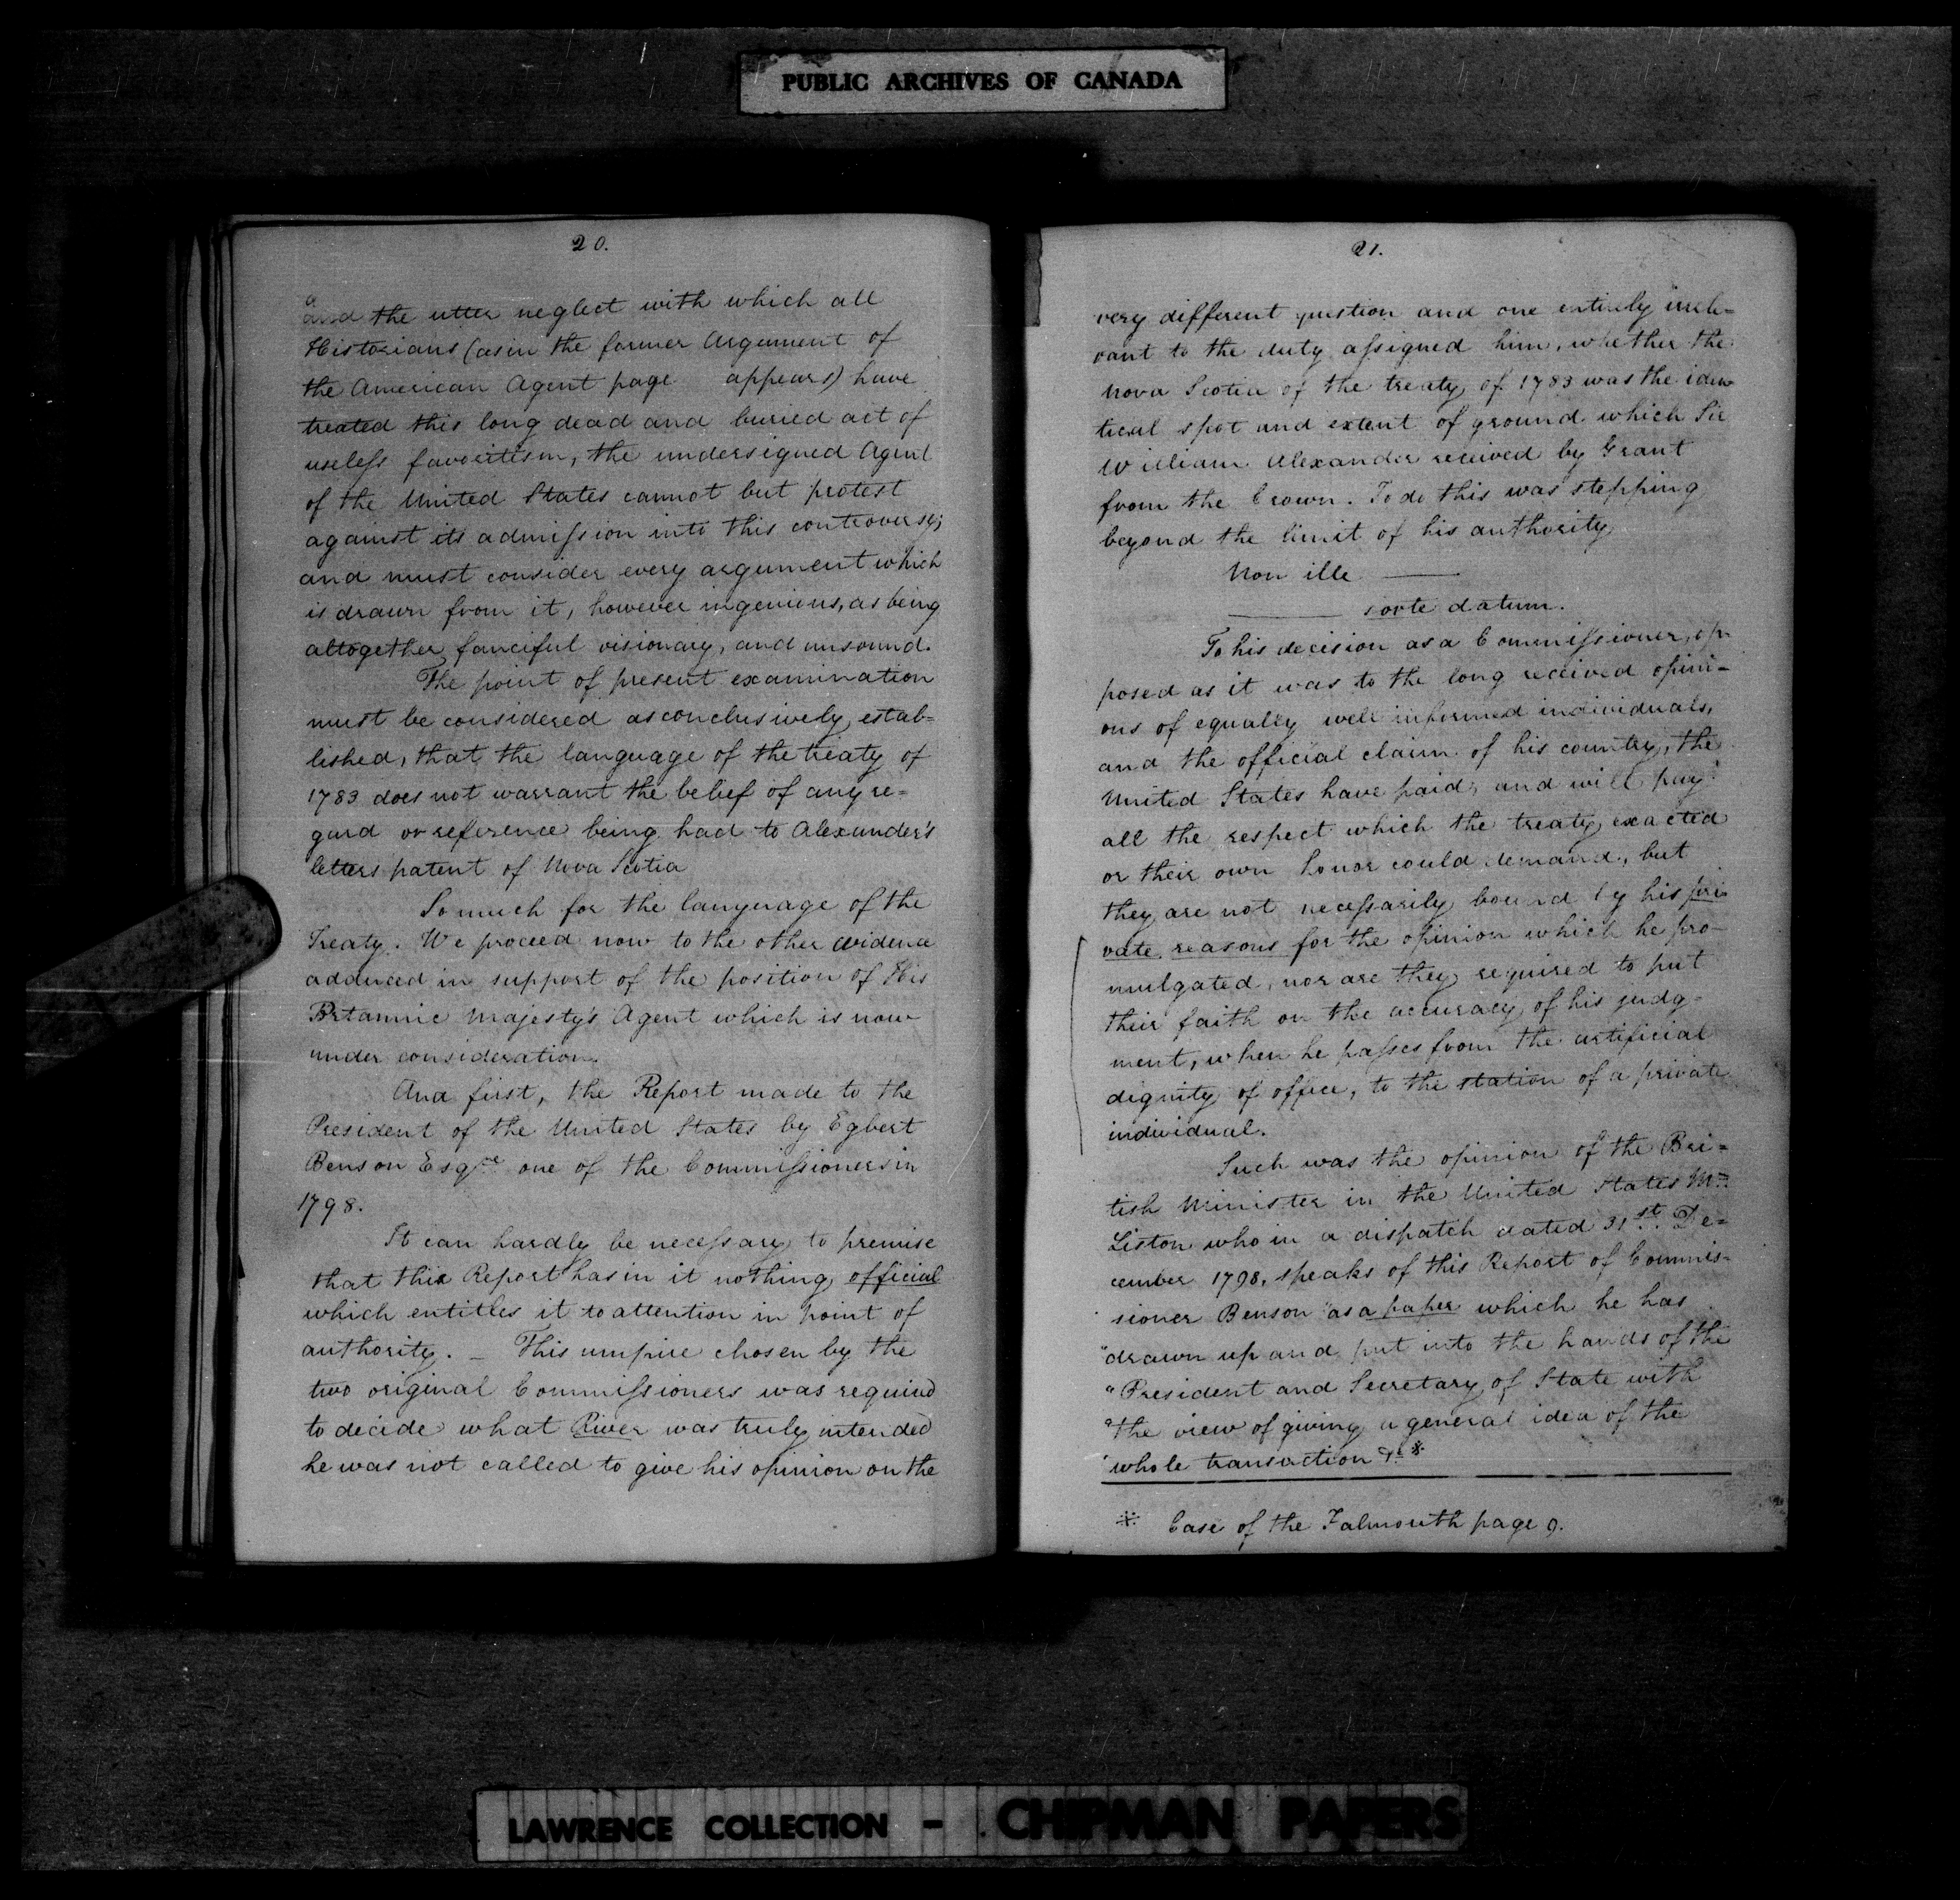 PUBLIC ARCHIVES OF CANADA
20.
and the utter neglect with which all
Historians (as in the former Argument of
the American Agent page appears) have
treated this long dead and buried act of
useless favoritism, the undersigned Agent
of the United States cannot but protest
against its admission into this controversy;
and must consider every argument which
is drawn from it, however ingenious, as being
altogether fanciful visionary, and unsound.
The point of present examination
must be considered as conclusively estab=
lished, that the language of the treaty of
1783 does not warrant the belief of any re=
gard or reference being had to Alexander's
letters patent of Nova Scotia
So much for the language of the
Treaty. We proceed now to the other evidence
adduced in support of the position of His
Britannic Majesty's Agent which is now
under consideration.
And first, the Report made to the
President of the United States by Egbert
Benson Esqre one of the Commissioners in
1798.
It can hardly be necessary to premise
that this Report has in it nothing official
which entitles it to attention in point of
authority. _ This umpire chosen by the
two original Commissioners was required
to decide what River was truly intended
he was not called to give his opinion on the
21.
very different question and one entirely irrele=
vant to the duty assigned him, whether the
Nova Scotia of the treaty of 1783 was the iden
tical spot and extent of ground which Sir
William Alexander received by Grant
from the Crown. To do this was stepping
beyond the limit of his authority
Non ille ——
—— sorte datum.
To his decision as a Commissioner, op
posed as it was to the long received opini=
ons of equally well informed individuals,
and the official claim of his country, the
United States have paid, and will pay
all the respect which the treaty exacted
or their own honor could demand, but
they are not necessarily bound by his pri
vate reasons for the opinion which he pro-
mulgated, nor are they required to put
their faith on the accuracy of his judg-
ment, when he passes from the artificial
dignity of office, to the station of a private
individual.
Such was the opinion of the Bri=
tish Minister in the United States Mr.
Liston who in a dispatch dated 31st. De=
cember 1798, speaks of this Report of Commis=
sioner Benson "as a paper which he has
"drawn up and put into the hands of the
"President and Secretary of State with
"the view of giving a general idea of the
"whole transaction &c *
* Case of the Falmouth page 9.
LAWRENCE COLLECTION - CHIPMAN PAPERS